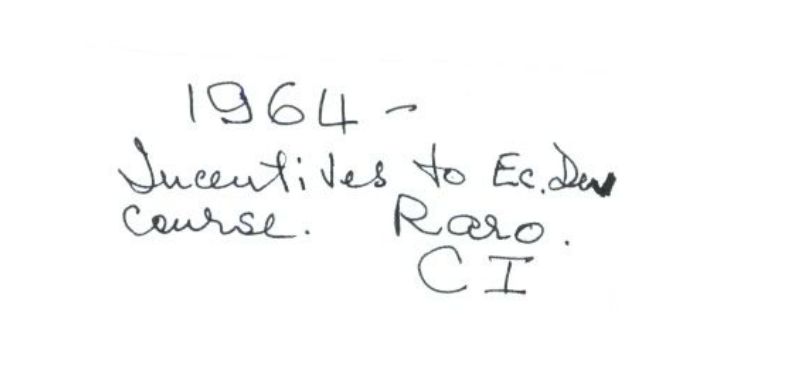 1964 -
Incentives to Ec. Dev
course. Raro.
CI